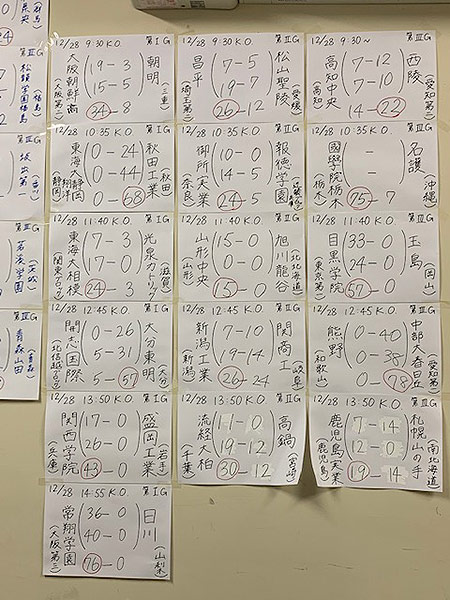 12/28 9:30 K.O. 第Ⅰ G
大阪朝鮮高
(大阪第二)
19-3
15-5
34-8
朝明
(三重)
12/28 9:30 K.O. 第Ⅱ G
昌平
(埼玉第一)
19-7
7-5
26-12
松山聖陵
(愛媛)
12/28 9:30~ 第Ⅲ G
高知中央
(高知)
7-12
7-10
14-22
西陵
(愛知第二)
12/28 10:35 K.O. 第Ⅰ G
東海大静岡翔洋
(静岡)
0-24
0-44
0-68
秋田工業
(秋田)
12/28 10:35 K.O. 第Ⅱ G
御所実業
(奈良)
10-0
14-5
24-5
報徳学園
12/28 10:35 K.O. 第Ⅲ G
國學院栃木
(栃木)
-
-
75-7
名護
(沖縄)
12/28 11:40 K.O. 第Ⅰ G
東海大相模
(関東ブロック)
17-3
7-0
24-3
光泉カトリック
(滋賀)
12/28 11:40 K.O. 第Ⅱ G
山形中央
(山形)
15-0
0-0
15-0
旭川龍谷
(北北海道)
12/28 11:40 K.O. 第Ⅲ G
目黒学院
(東京第一)
33-0
24-0
57-0
玉島
(岡山)
12/28 12:45 K.O. 第Ⅰ G
開志国際
(北信越ブロック)
0-26
5-31
5-57
大分東明
(大分)
12/28 12:45 K.O. 第Ⅱ G
新潟工業
(新潟)
7-10
19-14
26-24
関商工
(岐阜)
12/28 12:45 K.O. 第Ⅲ G
熊野
(和歌山)
0-40
0-38
0-78
中部大春日丘
(愛知第一)
12/28 13:50 K.O. 第Ⅰ G
関西学院
(兵庫)
17-0
26-0
43-0
盛岡工業
(岩手)
12/28 13:50 K.O. 第Ⅱ G
流経大柏
(千葉)
11-0
19-12
30-12
高鍋
(宮崎)
12/28 13:50 K.O. 第Ⅲ G
鹿児島実業
(鹿児島)
7-14
12-0
19-14
札幌山の手
(南北海道)
12/28 14:55 K.O. 第Ⅰ G
常翔学園
(大阪第三)
36-0
40-0
76-0
日川
(山梨)
第Ⅲ G
第Ⅲ G
第Ⅲ G
第Ⅲ G
青森山田
(青森)